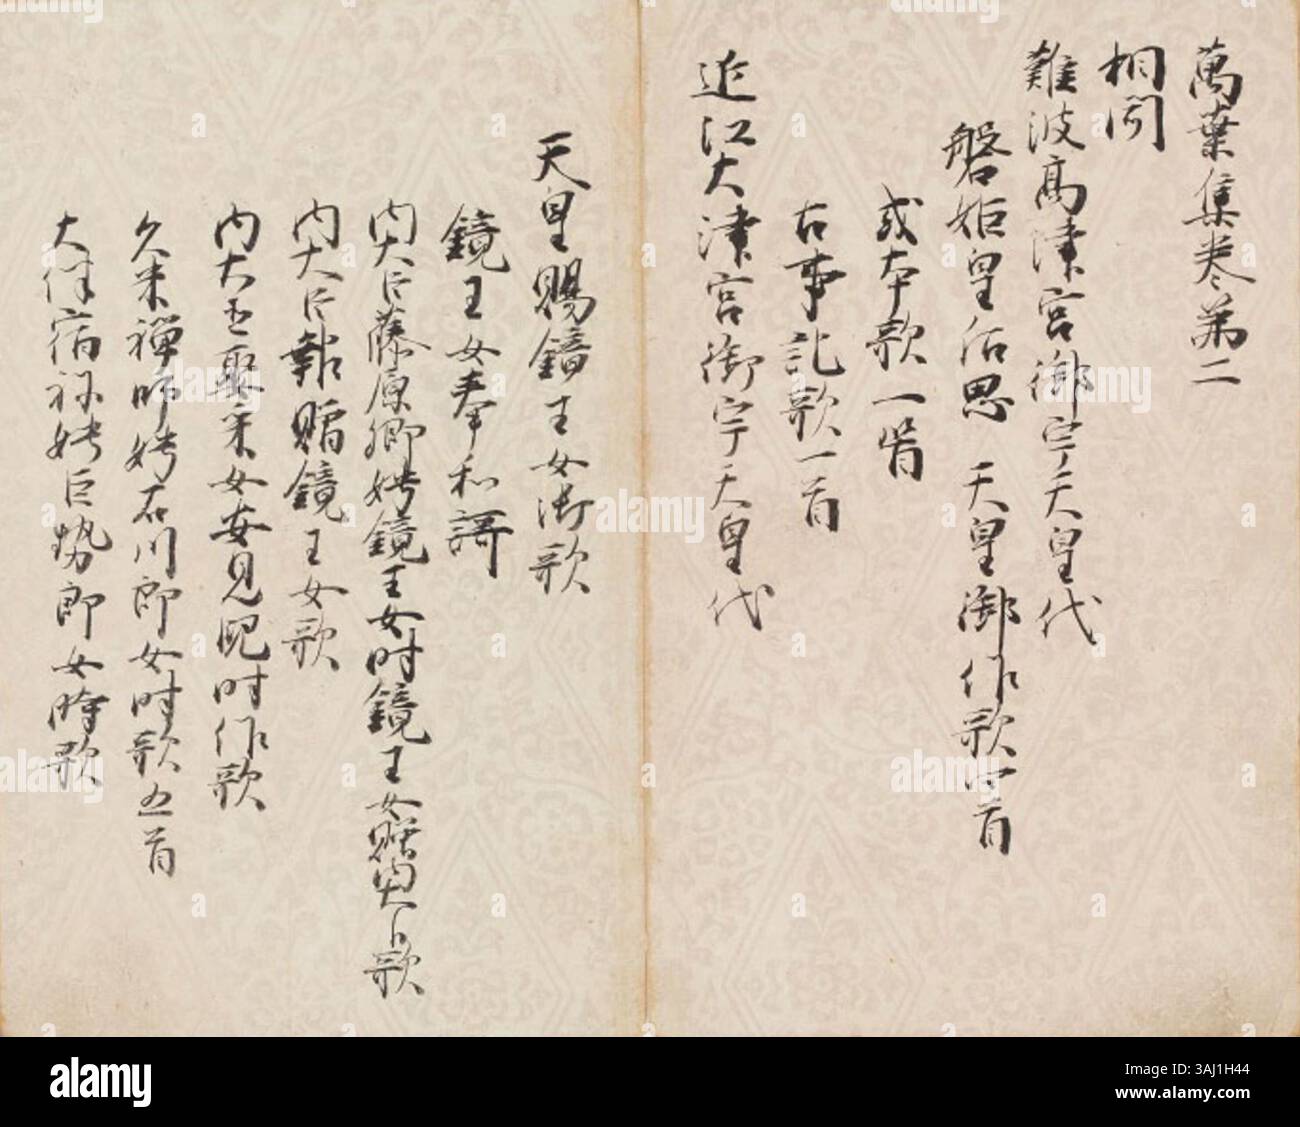 萬葉集巻第二
相聞
難波高津宮御宇天皇代
磐姫皇后思 天皇御作歌四首
或本歌一首
古事記歌一首
近江大津宮御宇天皇代
天皇賜鏡王女御歌
鏡王女奉和謌
内大臣藤原卿娉鏡王女時鏡王女贈内大臣歌
内大臣報贈鏡王女歌
内大臣娶采女安見児時作歌
久米禅師娉石川郎女時歌五首
大伴宿祢娉巨勢郎女時歌
alamy
Image ID: 3AJ1H44
www.alamy.com